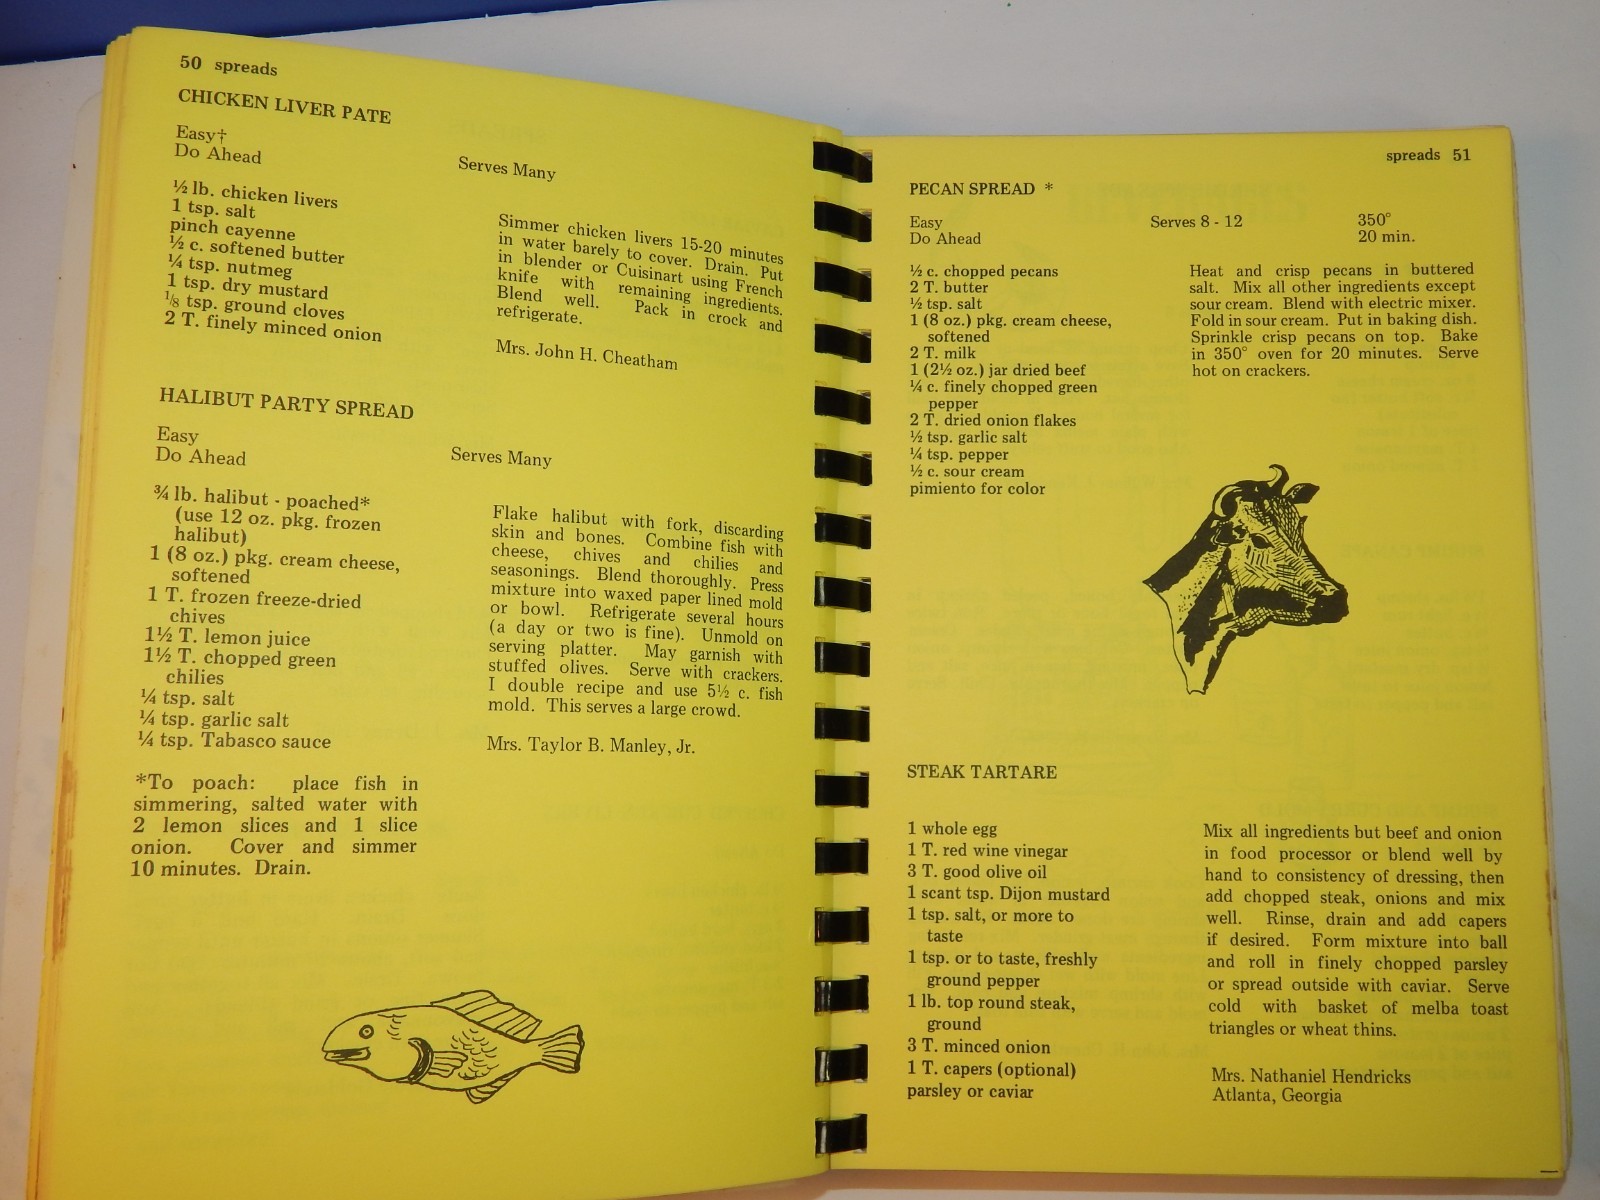 50 spreads
CHICKEN LIVER PATE
Easy†
Do Ahead
Serves Many
½ lb. chicken livers
1 tsp. salt
pinch cayenne
½ c. softened butter
¼ tsp. nutmeg
1 tsp. dry mustard
⅛ tsp. ground cloves
2 T. finely minced onion
Simmer chicken livers 15-20 minutes
in water barely to cover. Drain. Put
in blender or Cuisinart using French
knife with remaining ingredients.
Blend well. Pack in crock and
refrigerate.
Mrs. John H. Cheatham
HALIBUT PARTY SPREAD
Easy
Do Ahead
Serves Many
¾ lb. halibut - poached*
(use 12 oz. pkg. frozen
halibut)
1 (8 oz.) pkg. cream cheese,
softened
1 T. frozen freeze-dried
chives
1½ T. lemon juice
1½ T. chopped green
chilies
¼ tsp. salt
¼ tsp. garlic salt
¼ tsp. Tabasco sauce
*To poach: place fish in
simmering, salted water with
2 lemon slices and 1 slice
onion. Cover and simmer
10 minutes. Drain.
Flake halibut with fork, discarding
skin and bones. Combine fish with
cheese, chives and chilies and
seasonings. Blend thoroughly. Press
mixture into waxed paper lined mold
or bowl. Refrigerate several hours
(a day or two is fine). Unmold on
serving platter. May garnish with
stuffed olives. Serve with crackers.
I double recipe and use 5½ c. fish
mold. This serves a large crowd.
Mrs. Taylor B. Manley, Jr.
spreads 51
PECAN SPREAD *
Easy
Do Ahead
Serves 8 - 12
350°
20 min.
½ c. chopped pecans
2 T. butter
½ tsp. salt
1 (8 oz.) pkg. cream cheese,
softened
2 T. milk
1 (2½ oz.) jar dried beef
¼ c. finely chopped green
pepper
2 T. dried onion flakes
½ tsp. garlic salt
¼ tsp. pepper
½ c. sour cream
pimiento for color
Heat and crisp pecans in buttered
salt. Mix all other ingredients except
sour cream. Blend with electric mixer.
Fold in sour cream. Put in baking dish.
Sprinkle crisp pecans on top. Bake
in 350° oven for 20 minutes. Serve
hot on crackers.
STEAK TARTARE
1 whole egg
1 T. red wine vinegar
3 T. good olive oil
1 scant tsp. Dijon mustard
1 tsp. salt, or more to
taste
1 tsp. or to taste, freshly
ground pepper
1 lb. top round steak,
ground
3 T. minced onion
1 T. capers (optional)
parsley or caviar
Mix all ingredients but beef and onion
in food processor or blend well by
hand to consistency of dressing, then
add chopped steak, onions and mix
well. Rinse, drain and add capers
if desired. Form mixture into ball
and roll in finely chopped parsley
or spread outside with caviar. Serve
cold with basket of melba toast
triangles or wheat thins.
Mrs. Nathaniel Hendricks
Atlanta, Georgia